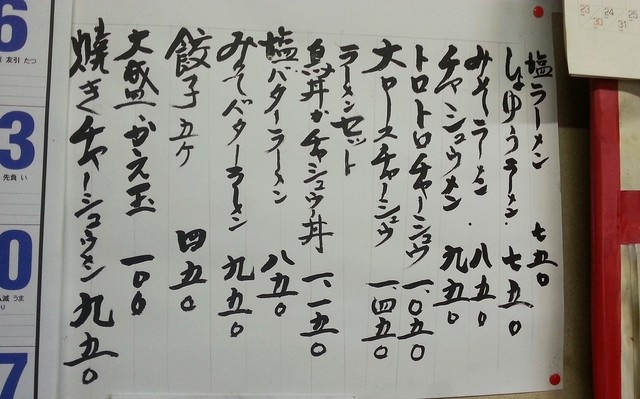 塩ラーメン 七五〇
しょゆうラーメン 七五〇
みそラーメン 八五〇
チャシュウメン 九五〇
トロトロチャーシュウ 一、〇五〇
大ロースチャーシュウ 一、四五〇
ラーメンセット
鳥丼かチャシュウ丼 一、一五〇
塩バターラーメン 八五〇
みそバターラーメン 九五〇
餃子 五ケ 四五〇
大盛 かえ玉 一〇〇
焼きチャーシュウメン 九五〇
23 24 25
30 31
6
友引 たつ
3
先負 い
0
滅 うま
7